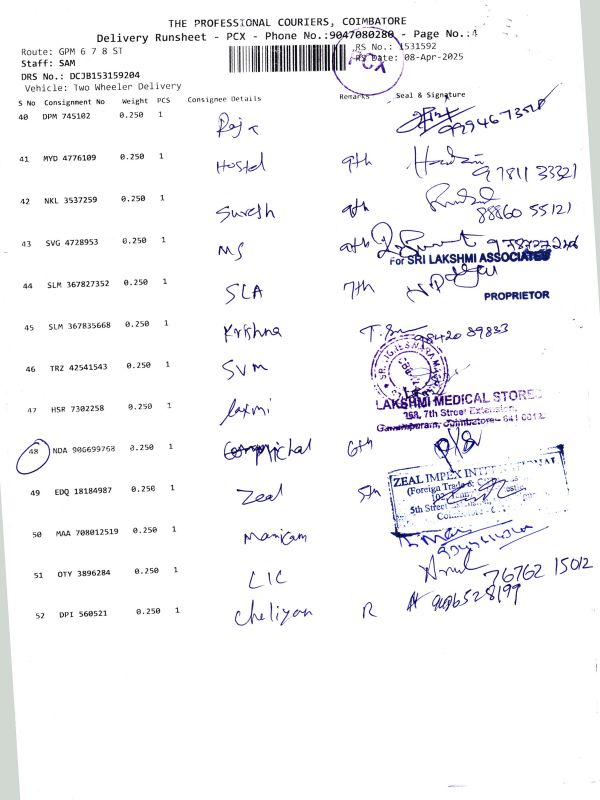 THE PROFESSIONAL COURIERS, COIMBATORE
Delivery Runsheet - PCX - Phone No.:9047080280 - Page No.:4
Route: GPM 6 7 8 ST
RS No.: 1531592
Staff: SAM
RS Date: 08-Apr-2025
DRS No.: DCJB153159204
Vehicle: Two Wheeler Delivery
S No Consignment No Weight PCS Consignee Details Remarks Seal & Signature
40 DPM 745102 0.250 1 Raja
41 MYD 4776109 0.250 1 Hostel 9th 97811 33321
42 NKL 3537259 0.250 1 Suresh 9th 88860 55121
43 SVG 4728953 0.250 1 MS 9th
For SRI LAKSHMI ASSOCIATES
44 SLM 367827352 0.250 1 SLA 7th
PROPRIETOR
45 SLM 367835668 0.250 1 Krishna 98420 89833
46 TRZ 42541543 0.250 1 SVM
47 HSR 7302258 0.250 1 laxmi
LAKSHMI MEDICAL STORES
358, 7th Street Extension,
Ganapathipuram, Coimbatore - 641 0012
48 NDA 906699768 0.250 1 6th
49 EDQ 18184987 0.250 1 Zeal 5th
ZEAL IMPEX INTERNATIONAL
(Foreign Trade &
5th Street
50 MAA 708012519 0.250 1 Manicam
51 OTY 3896284 0.250 1 LIC Arul 76762 15012
52 DPI 560521 0.250 1 Cheliyan R 9096528199